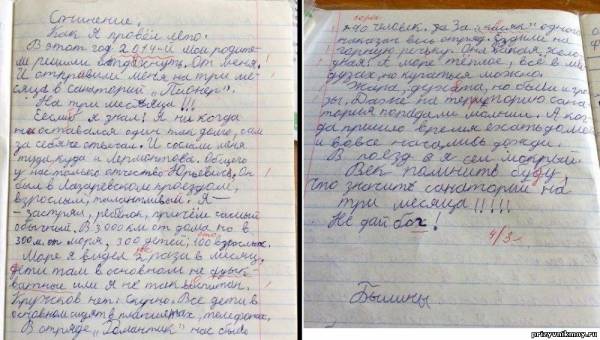 Сочинение.
Как Я провёл лето.
В этот год 2014-й мои родите-
ли решили отдохнуть. От меня.
И отправили меня на три ме-
сяца в санаторий „Пионер".
На три месяца!!!
Если б я знал! Я ни когда
не оставался один так долго, сам
за себя не отвечал. И сослали меня
туда куда и Лермонтова. Общего
у нас только отчество Юрьевич. Он
был в Лазаревском проездом,
взрослым, талантливый. Я —
— застрял, ребёнок, причём самый
обычный. В 3000 км от дома но в
300 м. от моря, 300 детей, 100 взрослых.
Море я видел 2 раза в месяц.
Дети там в основном не
ватные или я не так воспитан.
Кружков нет. Скучно. Все дети в
основном сидят в планшетах, телефонах.
В отряде „Романтик" нас было
сорок
>40 человек. За „косяк" одного
наказан весь отряд. Ездили на
горную речку. Она мелкая, холо-
дная. А море тёплое, всё в ме-
дузах, но купаться можно.
Жара, духота, но были и гро-
зы. Даже на территорию сана-
тория попадали молнии. А ког-
да пришло время ехать домой
и вовсе начались дожди.
В поезд я сел мокрый.
Век помнить буду
что значить санаторий на
три месяца!!!!!
Не дай бог!
4/3-
Былины
prizyvnikmoy.ru